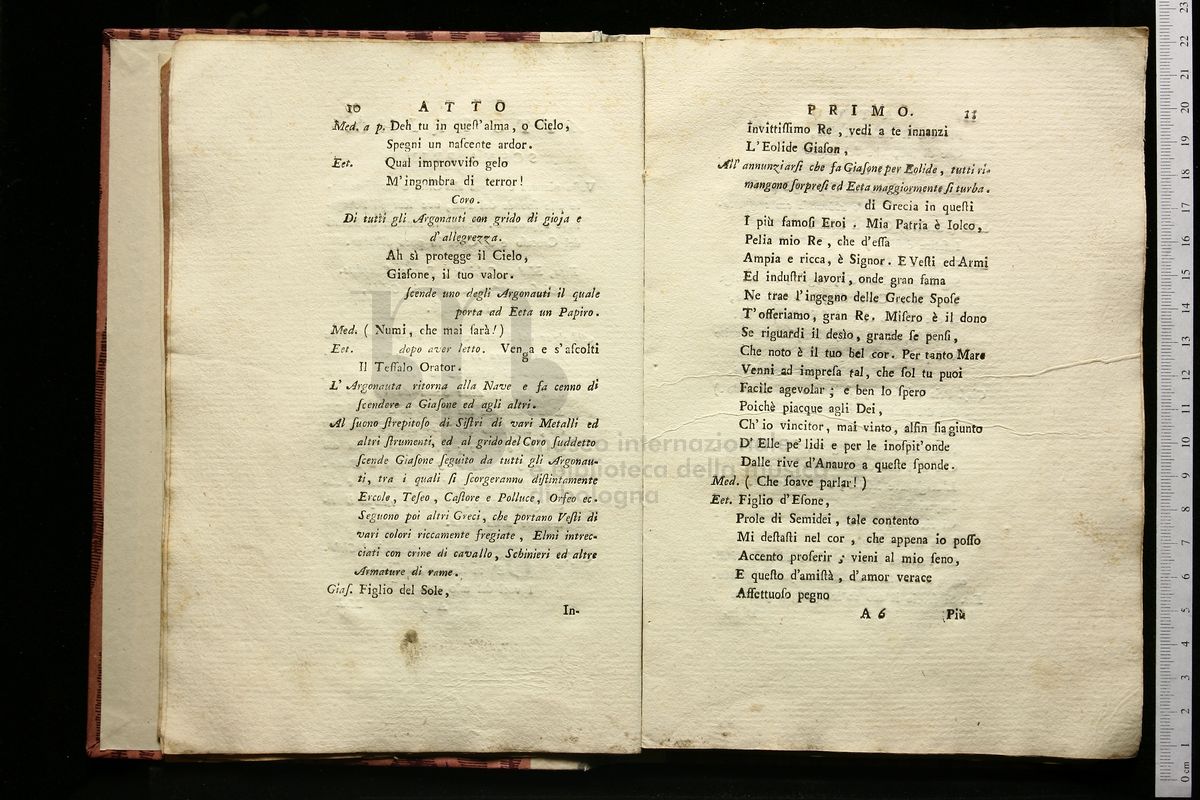 10 ATTO
Med. a p. Deh tu in queſt'alma, o Cielo,
Spegni un naſcente ardor.
Eet. Qual improvviſo gelo
M'ingombra di terror!
Coro.
Di tutti gli Argonauti con grido di gioja e
d'allegrezza.
Ah sì protegge il Cielo,
Giaſone, il tuo valor.
ſcende uno degli Argonauti il quale
porta ad Eeta un Papiro.
Med. ( Numi, che mai ſarà! )
Eet. dopo aver letto. Venga e s'aſcolti
Il Teſſalo Orator.
L'Argonauta ritorna alla Nave e fa cenno di
ſcendere a Giaſone ed agli altri.
Al ſuono ſtrepitoſo di Siſtri di vari Metalli ed
altri ſtrumenti, ed al grido del Coro ſuddetto
ſcende Giaſone ſeguito da tutti gli Argonau-
ti, tra i quali ſi ſcorgeranno diſtintamente
Ercole, Teſeo, Caſtore e Polluce, Orfeo ec.
Seguono poi altri Greci, che portano Veſti di
vari colori riccamente fregiate, Elmi intrec-
ciati con crine di cavallo, Schinieri ed altre
Armature di rame.
Giaſ. Figlio del Sole,
In-
PRIMO. 11
Invittiſſimo Re, vedi a te innanzi
L'Eolide Giaſon,
All'annunziarſi che fa Giaſone per Eolide, tutti ri-
mangono ſorpreſi ed Eeta maggiormente ſi turba.
di Grecia in queſti
I più famoſi Eroi. Mia Patria è Iolco,
Pelia mio Re, che d'eſſa
Ampia e ricca, è Signor. E Veſti ed Armi
Ed induſtri lavori, onde gran fama
Ne trae l'ingegno delle Greche Spoſe
T'offeriamo, gran Re. Miſero è il dono
Se riguardi il desìo, grande ſe penſi,
Che noto è il tuo bel cor. Per tanto Mare
Venni ad impreſa tal, che ſol tu puoi
Facile agevolar; e ben lo ſpero
Poichè piacque agli Dei,
Ch'io vincitor, mai vinto, alfin ſia giunto
D'Elle pe' lidi e per le inoſpit'onde
Dalle rive d'Anauro a queſte ſponde.
Med. ( Che ſoave parlar! )
Eet. Figlio d'Eſone,
Prole di Semidei, tale contento
Mi deſtaſti nel cor, che appena io poſſo
Accento proferir; vieni al mio ſeno,
E queſto d'amiſtà, d'amor verace
Affettuoſo pegno
A 6 Più
museo internazionale
e biblioteca della musica
di bologna